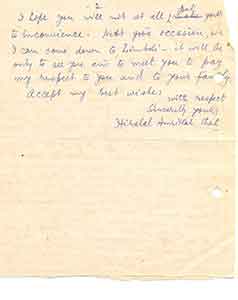 2
I hope you will not at all put yourself
to inconvience. Next your occasion,
I can come down to Limbdi - it will be
only to see you and to meet you to pay
my respect to you and to your family
accept my best wishes
with respect
Sincerely yours
Hiralal Amritlal Shah